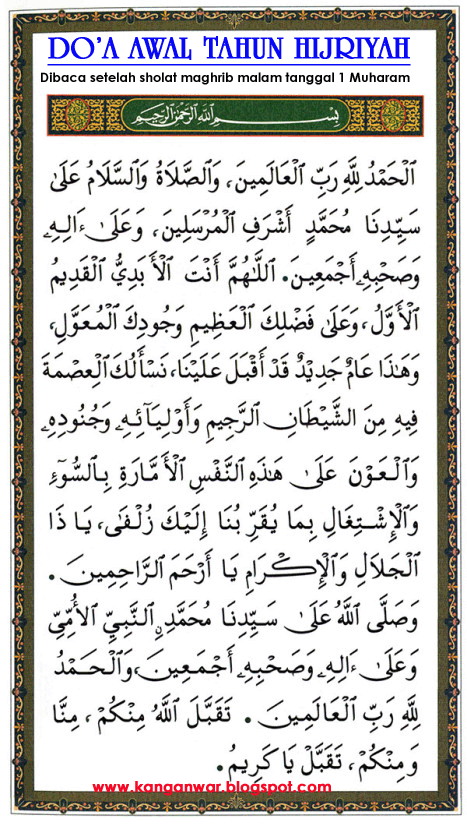 DO'A AWAL TAHUN HIJRIYAH
Dibaca setelah sholat maghrib malam tanggal 1 Muharam
بِسْمِ اللَّهِ الرَّحْمَنِ الرَّحِيمِ
اَلْحَمْدُ لِلَّهِ رَبِّ الْعَالَمِينَ، وَالصَّلَاةُ وَالسَّلَامُ عَلَى
سَيِّدِنَا مُحَمَّدٍ أَشْرَفِ الْمُرْسَلِينَ، وَعَلَى ءَالِهِ
وَصَحْبِهِ أَجْمَعِينَ. اَللَّهُمَّ أَنْتَ الْأَبَدِيُّ الْقَدِيمُ
الْأَوَّلُ، وَعَلَى فَضْلِكَ الْعَظِيمِ وَجُودِكَ الْمُعَوَّلِ،
وَهَذَا عَامٌ جَدِيدٌ قَدْ أَقْبَلَ عَلَيْنَا، نَسْأَلُكَ الْعِصْمَةَ
فِيهِ مِنَ الشَّيْطَانِ الرَّجِيمِ وَأَوْلِيَآئِهِ وَجُنُودِهِ
وَالْعَوْنَ عَلَى هَذِهِ النَّفْسِ الْأَمَّارَةِ بِالسُّوءِ
وَالْإِشْتِغَالِ بِمَا يُقَرِّبُنَا إِلَيْكَ زُلْفَى، يَا ذَا
الْجَلَالِ وَالْإِكْرَامِ يَا أَرْحَمَ الرَّاحِمِينَ.
وَصَلَّى اللَّهُ عَلَى سَيِّدِنَا مُحَمَّدٍ النَّبِيِّ الْأُمِّيِّ
وَعَلَى ءَالِهِ وَصَحْبِهِ أَجْمَعِينَ، وَالْحَمْدُ
لِلَّهِ رَبِّ الْعَالَمِينَ. تَقَبَّلَ اللَّهُ مِنْكُمْ، مِنَّا
وَمِنْكُمْ، تَقَبَّلْ يَا كَرِيمُ.
www.kanganwar.blogspot.com